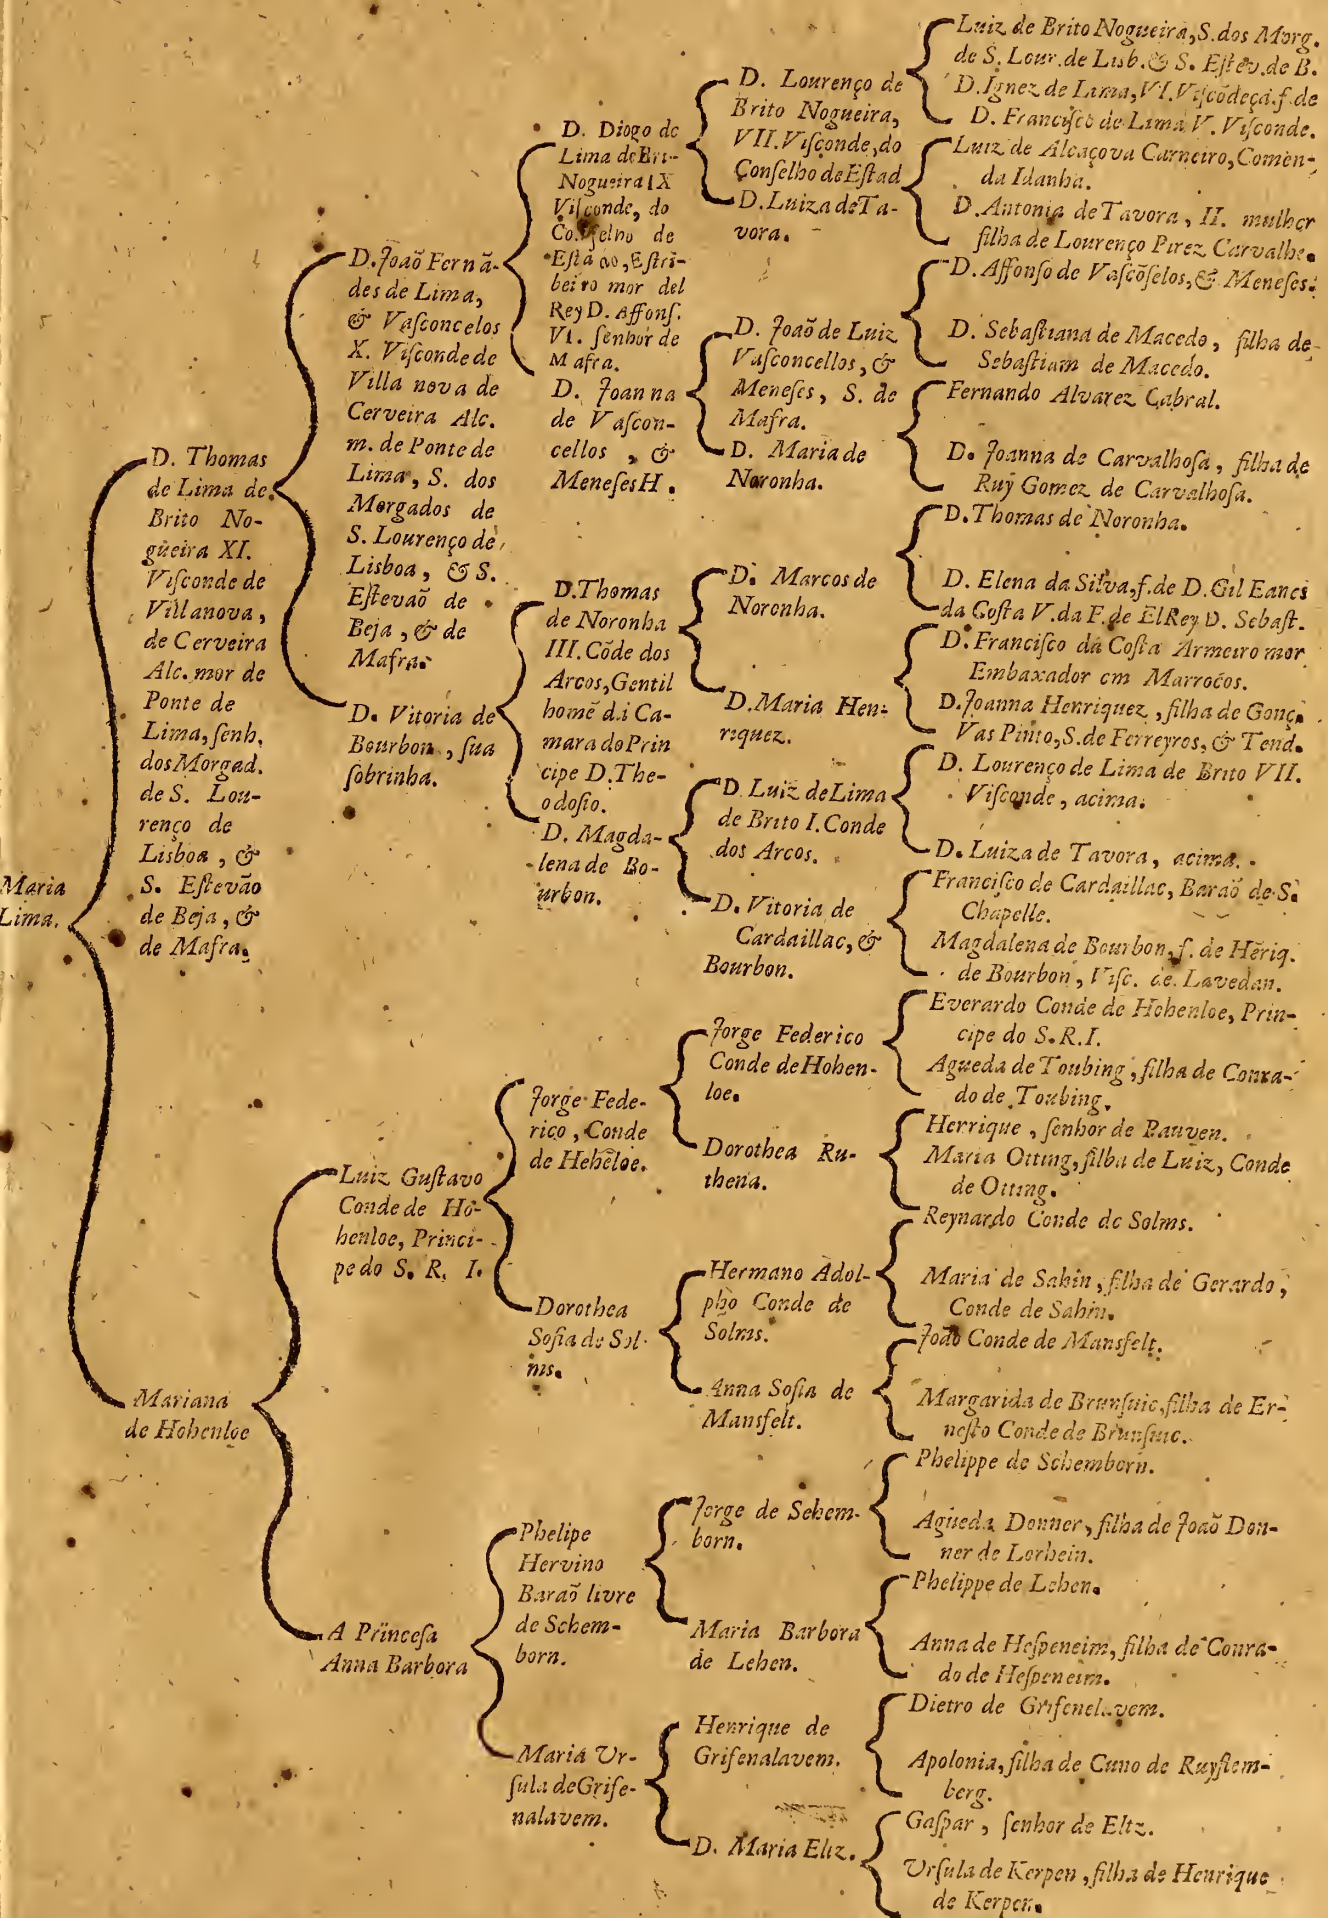 Maria
Lima.
D. Thomas
de Lima de
Brito No-
gueira XI.
Viſconde de
Villanova,
de Cerveira
Alc. mor de
Ponte de
Lima, ſenh.
dos Morgad.
de S. Lou-
renço de
Lisboa, &
S. Eſtevão
de Beja, &
de Mafra.
Mariana
de Hohenloe
D. Joaõ Fernã-
des de Lima,
& Vaſconcelos
X. Viſconde de
Villa nova de
Cerveira Alc.
m. de Ponte de
Lima, S. dos
Morgados de
S. Lourenço de
Lisboa, & S.
Eſtevaõ de
Beja, & de
Mafra.
D. Vitoria de
Bourbon, ſua
ſobrinha.
Luiz Guſtavo
Conde de Ho-
henloe, Princi-
pe do S. R. I.
A Princeſa
Anna Barbora
D. Diogo de
Lima de Bri-
Nogueira IX
Viſconde, do
Conſelho de
Eſtado, Eſtri-
beiro mor del
Rey D. Affonſ.
VI. ſenhor de
Mafra.
D. Joanna
de Vaſcon-
cellos, &
Meneſes H.
D. Thomas
de Noronha
III. Cõde dos
Arcos, Gentil
homẽ da Ca-
mara do Prin
cipe D. The-
odoſio.
D. Magda-
lena de Bo-
urbon.
Jorge Fede-
rico, Conde
de Hehẽloe.
Dorothea
Sofia de Sol-
ms.
Phelipe
Hervino
Baraõ livre
de Schem-
born.
Maria Ur-
ſula de Griſe-
nalavem.
D. Lourenço de
Brito Nogueira,
VII. Viſconde, do
Conſelho de Eſtad
D. Luiza de Ta-
vora.
D. Joaõ de Luiz
Vaſconcellos, &
Meneſes, S. de
Mafra.
D. Maria de
Noronha.
D. Marcos de
Noronha.
D. Maria Hen-
riquez.
D. Luiz de Lima
de Brito I. Conde
dos Arcos.
D. Vitoria de
Cardaillac, &
Bourbon.
Jorge Federico
Conde de Hohen-
loe.
Dorothea Ru-
thena.
Hermano Adol-
pho Conde de
Solms.
Anna Sofia de
Mansfelt.
Jorge de Sehem-
born.
Maria Barbora
de Lehen.
Henrique de
Griſenalavem.
D. Maria Eltz.
Luiz de Brito Nogueira, S. dos Morg.
de S. Lour. de Lisb. & S. Eſtev. de B.
D. Ignez de Lima, VI. Viſcõdeça. f. de
D. Franciſco de Lima V. Viſconde.
Luiz de Alcaçova Carneiro, Comen-
da Idanha.
D. Antonia de Tavora, II. mulher
filha de Lourenço Pirez Carvalho.
D. Affonſo de Vaſcõſelos, & Meneſes.
D. Sebaſtiana de Macedo, filha de
Sebaſtiam de Macedo.
Fernando Alvarez Cabral.
D. Joanna de Carvalhoſa, filha de
Ruy Gomez de Carvalhoſa.
D. Thomas de Noronha.
D. Elena da Silva, f. de D. Gil Eanes
da Coſta V. da F. de ElRey D. Sebaſt.
D. Franciſco da Coſta Armeiro mor
Embaxador em Marrocos.
D. Joanna Henriquez, filha de Gonç.
Vas Pinto, S. de Ferreyros, & Tend.
D. Lourenço de Lima de Brito VII.
Viſconde, acima.
D. Luiza de Tavora, acima.
Franciſco de Cardaillac, Baraõ de S.
Chapelle.
Magdalena de Bourbon, f. de Hẽriq.
de Bourbon, Viſc. de Lavedan.
Everardo Conde de Hohenloe, Prin-
cipe do S. R. I.
Agueda de Toubing, filha de Conra-
do de Toubing.
Henrique, ſenhor de Rauven.
Maria Otting, filha de Luiz, Conde
de Otting.
Reynardo Conde de Solms.
Maria de Sahin, filha de Gerardo,
Conde de Sahin.
Joaõ Conde de Mansfelt.
Margarida de Brunſuic, filha de Er-
neſto Conde de Brunſuic.
Phelippe de Schemborn.
Agueda Donner, filha de Joaõ Don-
ner de Lorhein.
Phelippe de Lehen.
Anna de Heſpeneim, filha de Conra-
do de Heſpeneim.
Dietro de
Apolonia, filha de Cuno de Ruyſtem-
berg.
Gaſpar, ſenhor de Eltz.
Urſula de Kerpen, filha de Henrique
de Kerpen.